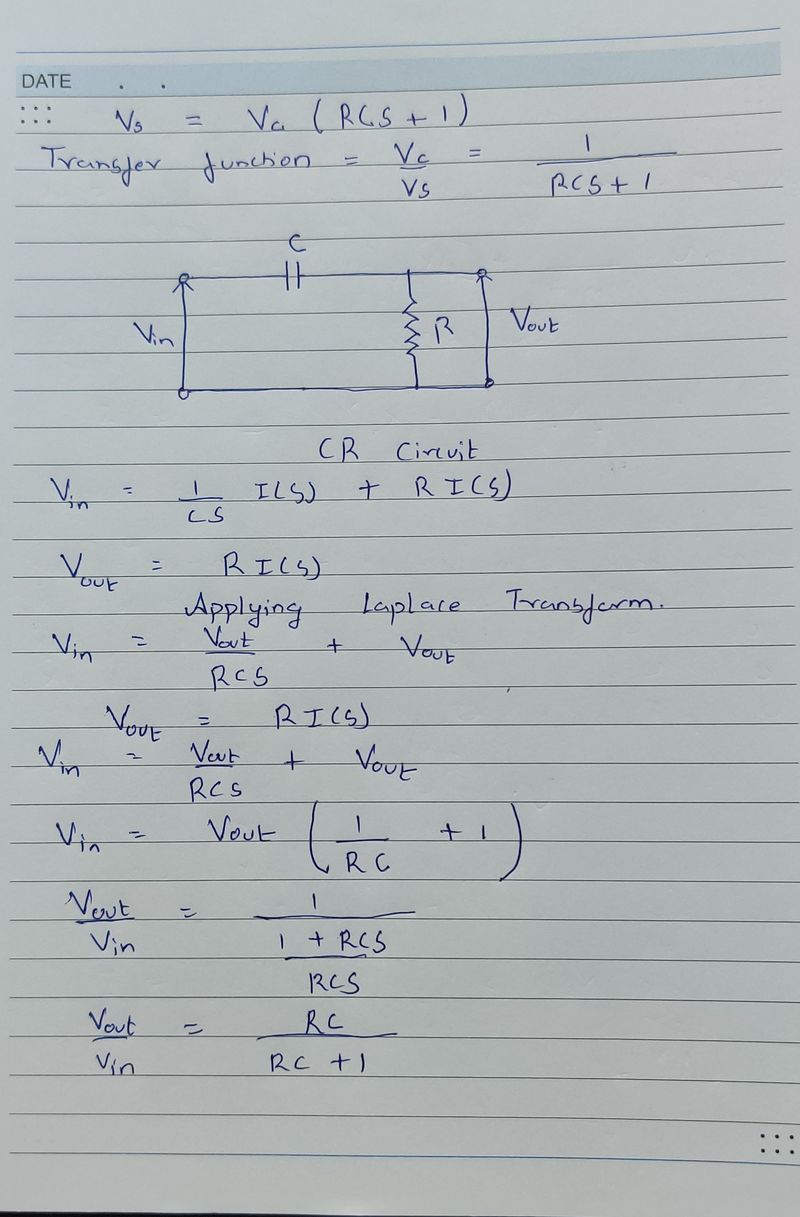 DATE
Vs = Vc (RCS + 1)
Transfer function = Vc/Vs = 1/(RCS + 1)
C
Vin
R
Vout
CR Circuit
Vin = 1/CS I(S) + R I(S)
Vout = R I(S)
Applying Laplace Transform.
Vin = Vout/RCS + Vout
Vout = R I(S)
Vin = Vout/RCS + Vout
Vin = Vout (1/RC + 1)
Vout/Vin = 1/((1 + RCS)/RCS)
Vout/Vin = RC/(RC + 1)